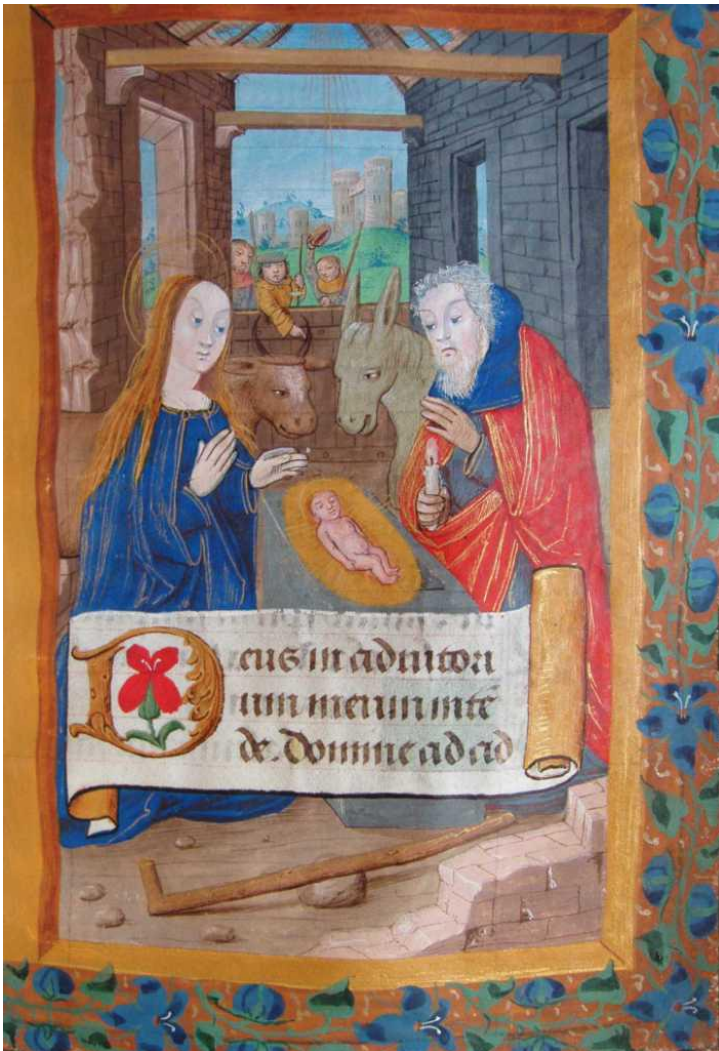 Deus in adiutori
um meum inte
de. Domine ad ad